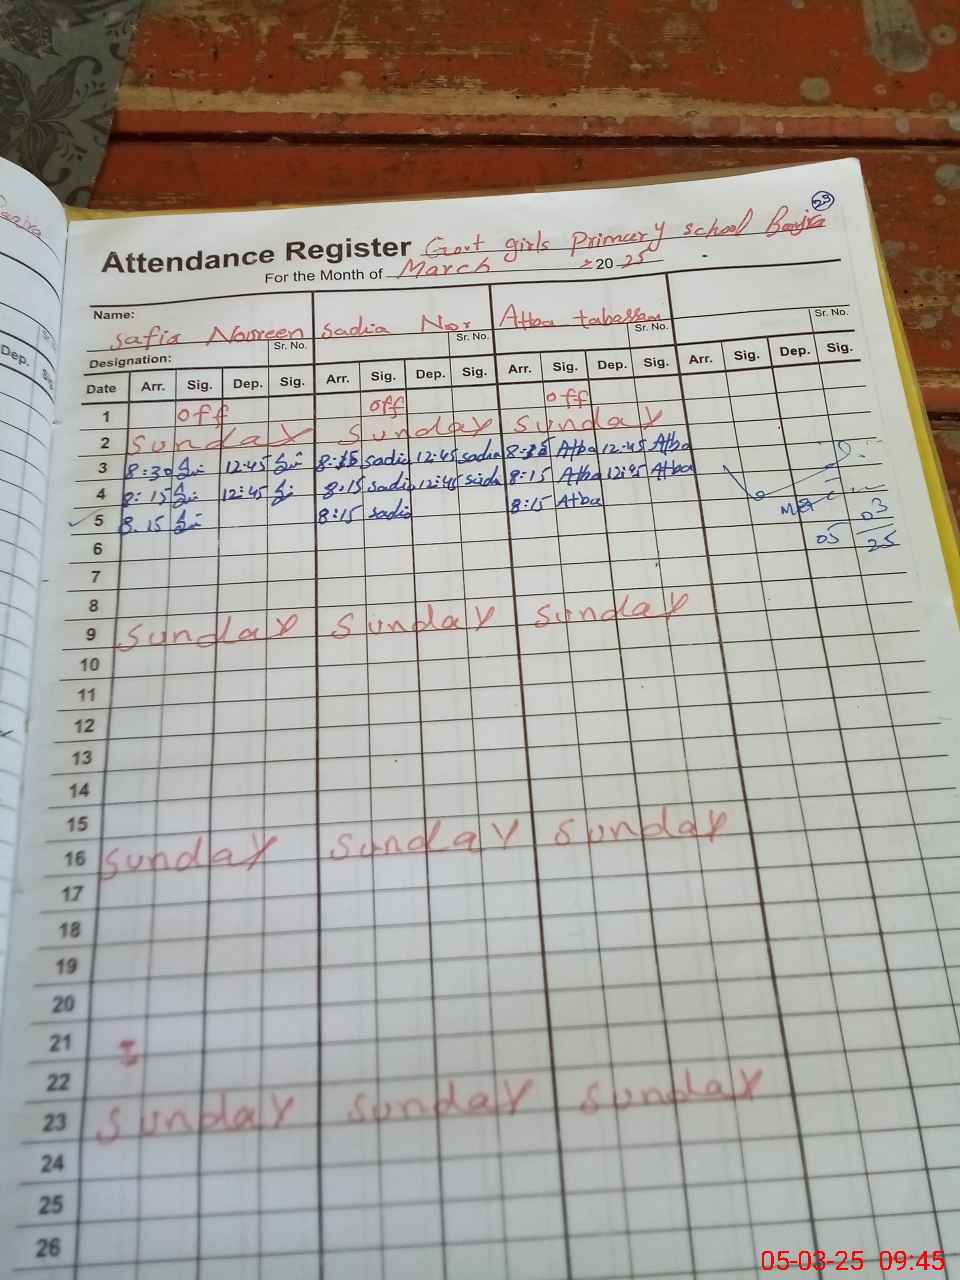 29
Attendance Register Govt girls Primary school Banjra
For the Month of March 2025
Name:
Safia Noureen Sadia Nor Atba tabassam
Sr. No. Sr. No. Sr. No. Sr. No.
Designation:
Date Arr. Sig. Dep. Sig. Arr. Sig. Dep. Sig. Arr. Sig. Dep. Sig. Arr. Sig. Dep. Sig.
1 off off off
2 Sunday Sunday Sunday
3 8:30 12:45 8:15 Sadia 12:45 Sadia 8:15 Atba 12:45 Atba
4 8:15 12:45 8:15 Sadia 12:45 Sadia 8:15 Atba 12:45 Atba
5 8:15 8:15 Sadia 8:15 Atba
05 03
25
6
7
8
9 Sunday Sunday Sunday
10
11
12
13
14
15
16 Sunday Sunday Sunday
17
18
19
20
21
22
23 Sunday Sunday Sunday
24
25
26
Dep.
05-03-25 09:45